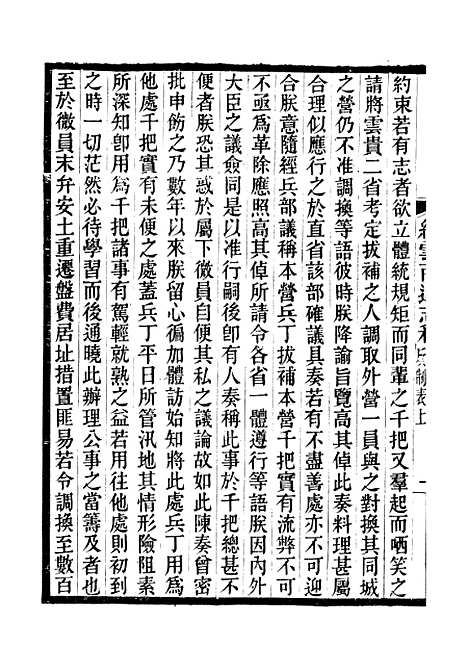 約束若有志者欲立體統規矩而同輩之千把又羣起而哂笑之
請將雲貴二省考定拔補之人調取外營一員與之對換其同城
之營仍不准調換等語彼時朕降諭旨覽高其倬此奏料理甚屬
合理似應行之於直省該部確議具奏若有不盡善處亦不可迎
合朕意隨經兵部議稱本營兵丁拔補本營千把實有流弊不可
不亟為革除應照高其倬所請令各省一體遵行等語朕因內外
大臣之議僉同是以准行嗣後卽有人奏稱此事於千把總甚不
便者朕恐其惑於屬下微員自便其私之議論故如此陳奏曾密
批申飭之乃數年以來朕留心徧加體訪始知將此處兵丁用為
他處千把實有未便之處蓋兵丁平日所管汛地其情形險阻素
所深知卽用為千把諸事有駕輕就熟之益若用往他處則初到
之時一切茫然必待學習而後通曉此辦理公事之當籌及者也
至於微員末弁安土重遷盤費居址措置匪易若令調換至數百